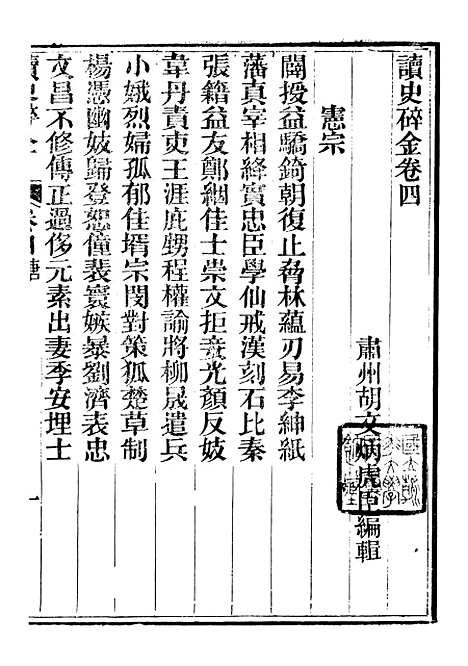 讀史碎金卷四
肅州胡文炳虎臣編輯
憲宗
闢授益驕錡朝復止脅林蘊刃易李紳紙
藩真宰相絳實忠臣學仙戒漢刻石比秦
張籍益友鄭絪佳士崇文拒意光顏反妓
韋丹責吏王涯庇甥程權諭將柳晟遣兵
小娥烈婦孤郁佳壻宗閔對策狐楚草制
楊憑幽妓歸登恕僮裴寰嫉暴劉濟表忠
文昌不修傳正過侈元素出妻季安埋士
讀史碎金 卷四唐 一